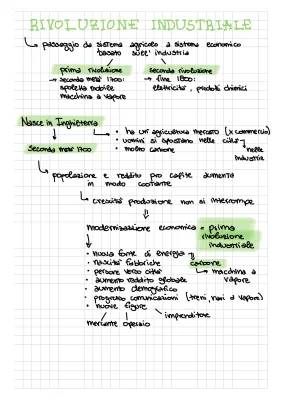 RIVOLUZIONE INDUSTRIALE
passaggio da sistema agricolo a sistema economico
basato sull'industria
prima rivoluzione
seconda rivoluzione
seconda metà 1700:
spoletta mobile
macchina a vapore
fine 1800:
elettricità, prodotti chimici
Nasce in Inghilterra
seconda metà 1700
• ha un'agricoltura mercato (x commercio)
• uomini si spostano nelle città
• molto carbone
nelle
industrie
popolazione e reddito pro capite aumenta
in modo costante
crescita produzione non si interrompe
modernizzazione economica = prima
rivoluzione
industriale
• nuova fonte di energia
• nascita fabbriche
• persone verso città
• aumento reddito globale
• aumento demografico
• progresso comunicazioni (treni, navi a vapore)
• nuove figure
carbone
macchina a
vapore
mercante operaio
imprenditore